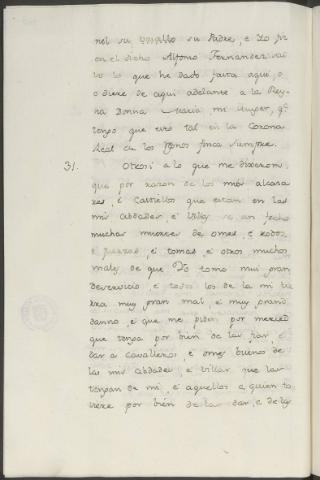 nel su         su Padre, e Yo
en el dicho Alfonso Fernandez sal
vo lo que he dado fasta aqui, o
o diere de aqui adelante a la Rey-
na Donna Maria mi Muger, q.e
tengo que era tal en la Corona
Real de los Regnos finca siempre.
31. Otrosi a lo que me dixeron,
que por razon de los mis alcaza
res, é Castillos que estan en las
mis Cibdades é Villas se an fecho
muchas muertes de omes, e robos,
é fuerzas, é tomas, é otros muchos
males de que Yo tomo mui gran
deservicio, é todos los de la mi tie
rra muy gran mal, é muy grand
danno, é que me piden por merced
que tenga por bien de las dar, e
dar a Cavalleros, é omes buenos de
las mis Cibdades, é Villas que las
tengan de mi, é aquellos a quien to
viere por bién de las dar, e de las